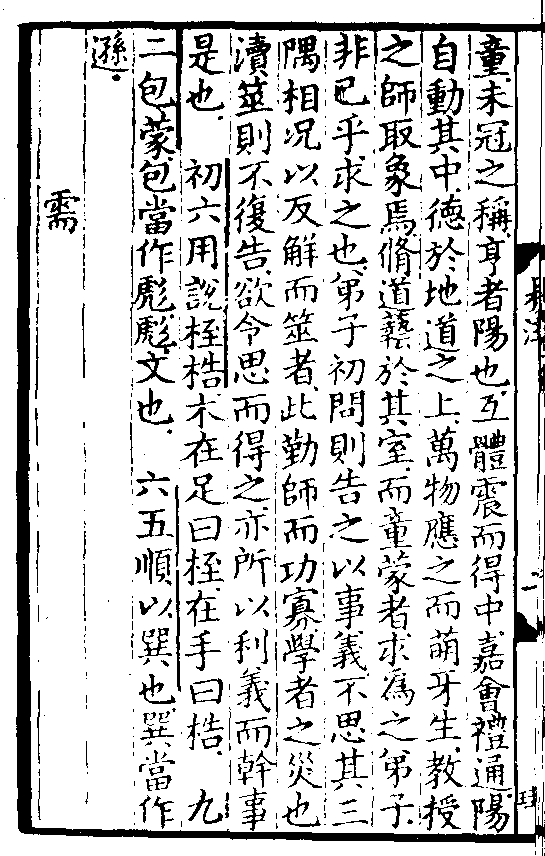 童未冠之稱亨者陽也互體震而得中嘉會禮通陽
自動其中德於地道之上萬物應之而萌牙生教授
之師取象焉脩道藝於其室而童蒙者求爲之弟子
非己乎求之也弟子初問則告之以事義不思其三
隅相况以反解而筮者此勤師而功寡學者之災也
瀆筮則不復告欲令思而得之亦所以利義而幹事
是也　初六用說桎梏木在足曰桎在手曰梏　九
二包蒙包當作彪彪文也　六五順以巽也巽當作
遜
需